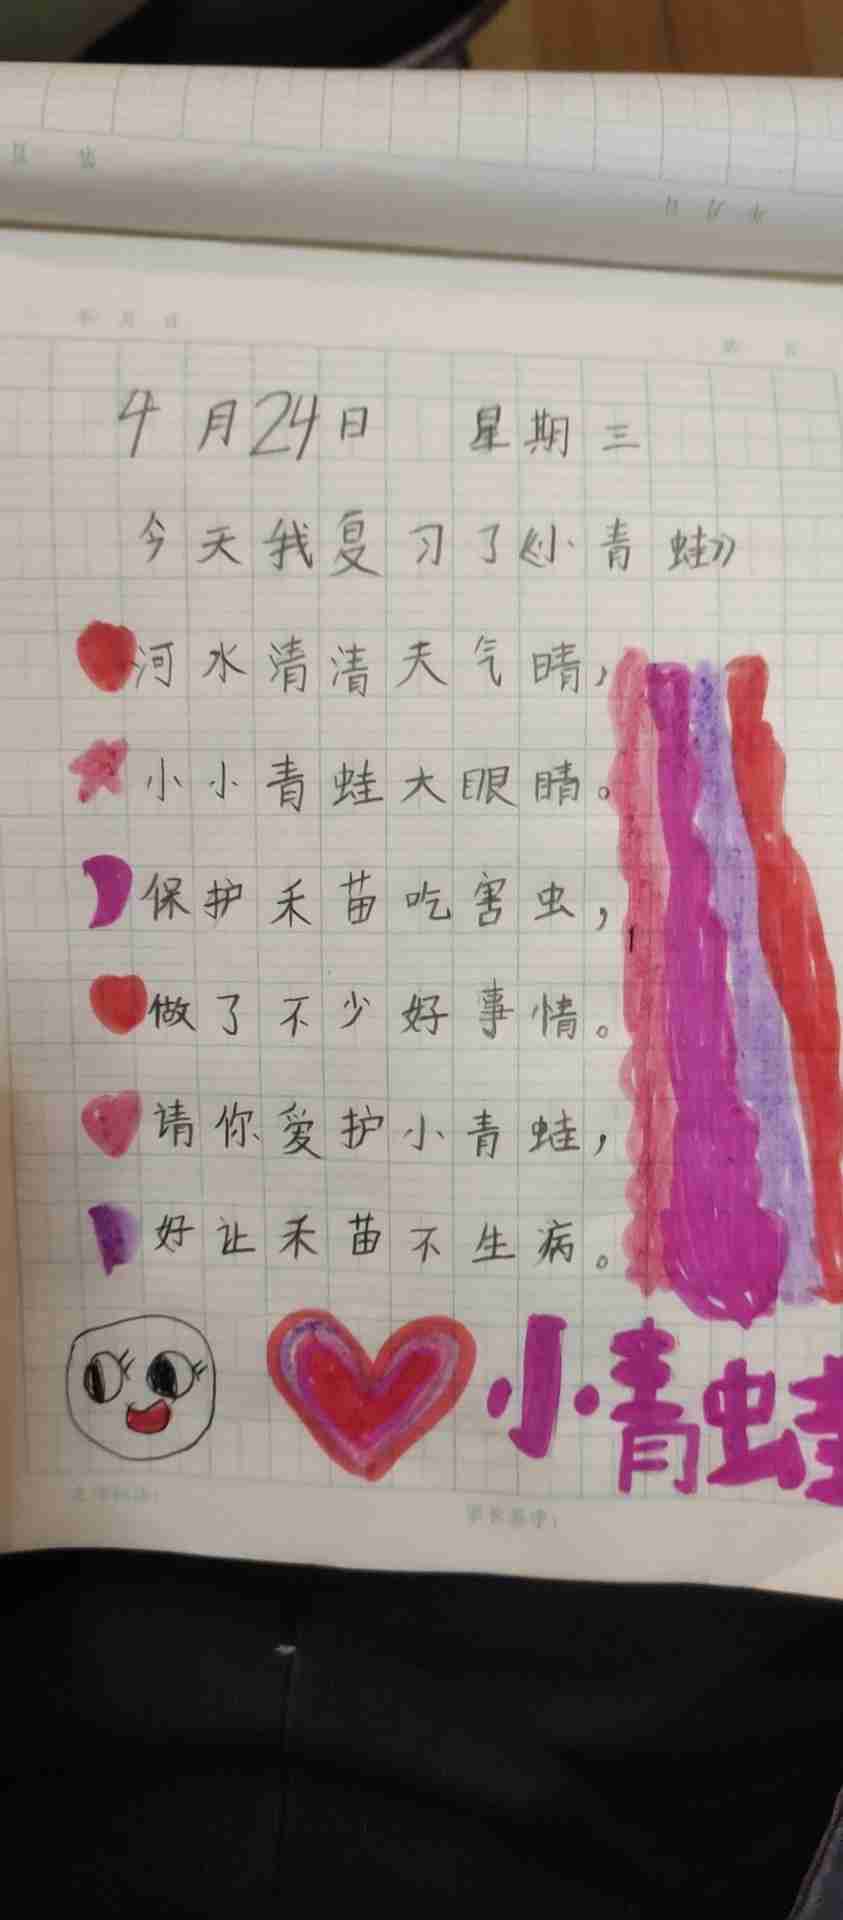 年 月 日
4月24日 星期三
今天我复习了《小青蛙》
河水清清天气晴，
小小青蛙大眼睛。
保护禾苗吃害虫，
做了不少好事情。
请你爱护小青蛙，
好让禾苗不生病。
小青蛙
家长签字：